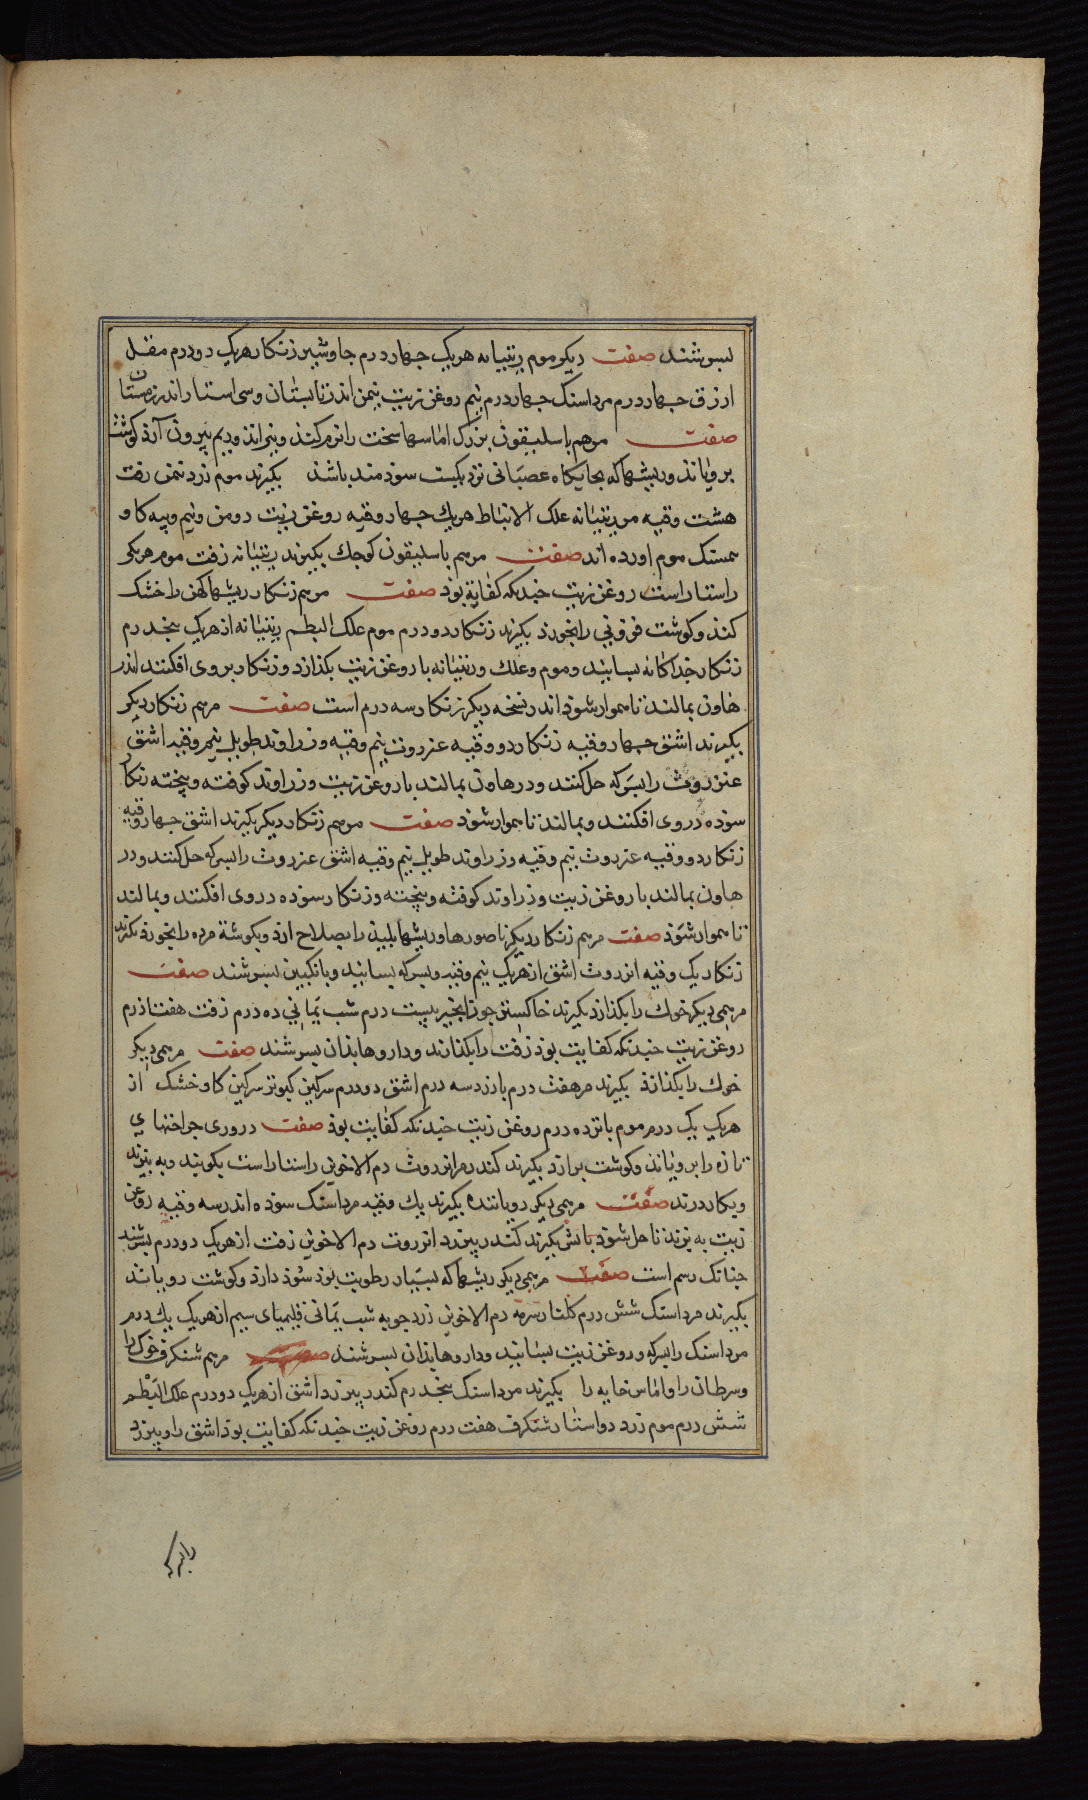 بسرشند صفت دیکر موم ریتیانه هریک جهار درم جاوشیر زنکار هریک دو درم مقل
ازرق جهار درم مرداسنک جهار درم نیم روغن زیت نیمن اندر تابستان وسی استار اندر زمستان
صفت مرهم باسلیقون بزرک اماسها سخت را نرم کند وبپزاند وریم بیرون آرد کوشت
برویاند وریشها که بجایکاه عصبانی نزدیکست سودمند باشد بکیرند موم زرد نیمن زفت
هشت وقیه موم ریتیانه علک الانباط هریک جهار وقیه روغن زیت دو من ونیم وپیه کاو
همسنک موم اورده اند صفت مرهم باسلیقون کوجک بکیرند ریتیانه زفت موم هریکی
راستاراست روغن زیت جندانکه کفایة بوذ صفت مرهم زنکار ریشها کهن را خشک
کند وکوشت فزونی را بخورد بکیرند زنکار دو درم موم علک البطم ریتیانه از هریک بنجدرم
زنکار جداکانه بسایند وموم وعلک وریتیانه با روغن زیت بکدازد وزنکار بروی افکنند اندر
هاون بمالند تا هموار شوذ اندر نسخه دیکر زنکار سه درم است صفت مرهم زنکار دیکر
بکیرند اشق جهار وقیه زنکار دو وقیه عنزروت نیم وقیه وزراوند طویل نیم وقیه اشق
عنزروت را بسرکه حل کنند ودر هاون بمالند با روغن زیت وزراوند کوفته وبیخته زنکار
سوده در وی افکنند وبمالند تا هموار شوذ صفت مرهم زنکار دیکر بکیرند اشق جهار وقیه
زنکار دو وقیه عنزروت نیم وقیه وزراوند طویل نیم وقیه اشق عنزروت را بسرکه حل کنند ودر
هاون بمالند با روغن زیت وزراوند کوفته وبیخته وزنکار سوده در وی افکنند وبمالند
تا هموار شوذ صفت مرهم زنکار دیکر ناصورها وریشها بلید را بصلاح ارذ وبکوشة مرده را بخورد بکیرند
زنکار یک وقیه انزروت اشق از هریک نیم وقیه وبسرکه بسایند وبانکبین بسرشند صفت
مرهمی دیکر خوک را بکدازد بکیرند خاکستر جوز انجیر بیست درم شب یمانی ده درم زفت هفتاد درم
روغن زیت جندانکه کفایت بوذ زفت را بکدازند ودارو ها بدان بسرشند صفت مرهمی دیکر
خوک را بکدازد بکیرند مر هفت درم بارزد سه درم اشق دو درم سرکین کبوتر سرکین کاو خشک از
هریک یک درم موم بانزده درم روغن زیت جندانکه کفایت بوذ صفت دروری جراحتهای
تازه را برویاند وکوشت برارد بکیرند کندر مر انزروت دم الاخوین راستاراست بکوبند وبه بیزند
وبکار درند صفت مرهمی دیکر رویاننده بکیرند یک وقیه مرداسنک سوده اندر سه وقیه روغن
زیت به پزند تا حل شوذ باتش بکیرند کندر بیرزد انزروت دم الاخوین زفت از هریک دو درم بسرشند
جنانک رسم است صفت مرهمی دیکر ریشها که بسیار رطوبت بود سوذ دارد وکوشت رویاند
بکیرند مرداسنک شش درم کلنار سرمه دم الاخوین زردجوبه شب یمانی قلیمیای سیم از هریک یک درم
مرداسنک را بسرکه وروغن زیت بسایند ودارو ها بدان بسرشند مرهم شنکرف خوک را
وسرطان را واماس خایه را بکیرند مرداسنک بنجدرم کندر بیرزد اشق از هریک دو درم علک البطم
شش درم موم زرد دو استار شنکرف هفت درم روغن زیت جندانکه کفایت بوذ اشق را وبیرزد
را بسرکه